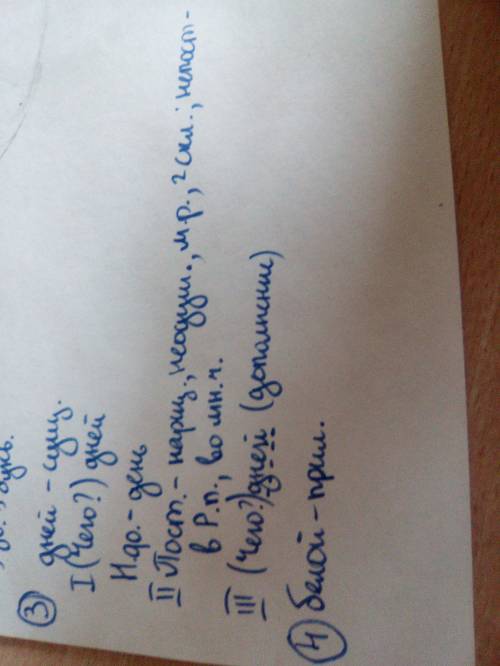 ③ дней - сущ.
I (Чего?) дней
Н.ф. - день
II Пост. - нариц., неодуш., м.р., 2 скл.; непост -
в Р.п., во мн.ч.
III (Чего?) дней (дополнение)
④ белой - прил.